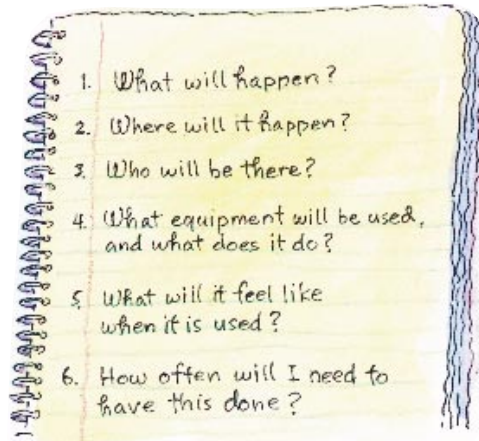 1. What will happen?
2. Where will it happen?
3. Who will be there?
4. What equipment will be used,
and what does it do?
5. What will it feel like
when it is used?
6. How often will I need to
have this done?